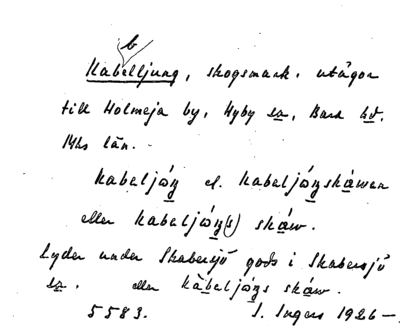 b
Kabelljung, skogsmark, utägor
till Holmeja by, Hyby sn, Bara hd.
Mhs län.
Kabeljång el. Kabeljångskåwen
eller Kabeljång(s) skåw.
Lyder under Skabersjö gods i Skabersjö
sn. eller Kåbeljångs skåw.
5583. I. Ingers 1926 —